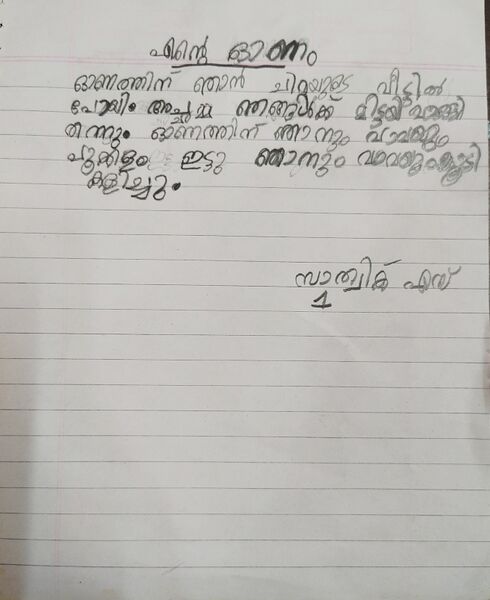 എന്റെ ഓണം
ഓണത്തിന് ഞാൻ ചിറ്റയുടെ വീട്ടിൽ
പോയി. അച്ഛമ്മ ഞങ്ങൾക്ക് മിട്ടായി വാങ്ങി
തന്നു. ഓണത്തിന് ഞാനും വാവയും
പൂക്കളം ഇട്ടു ഞാനും വാവയുംകൂടി
കളിച്ചു.
സ്വാത്വിക് എസ്
1